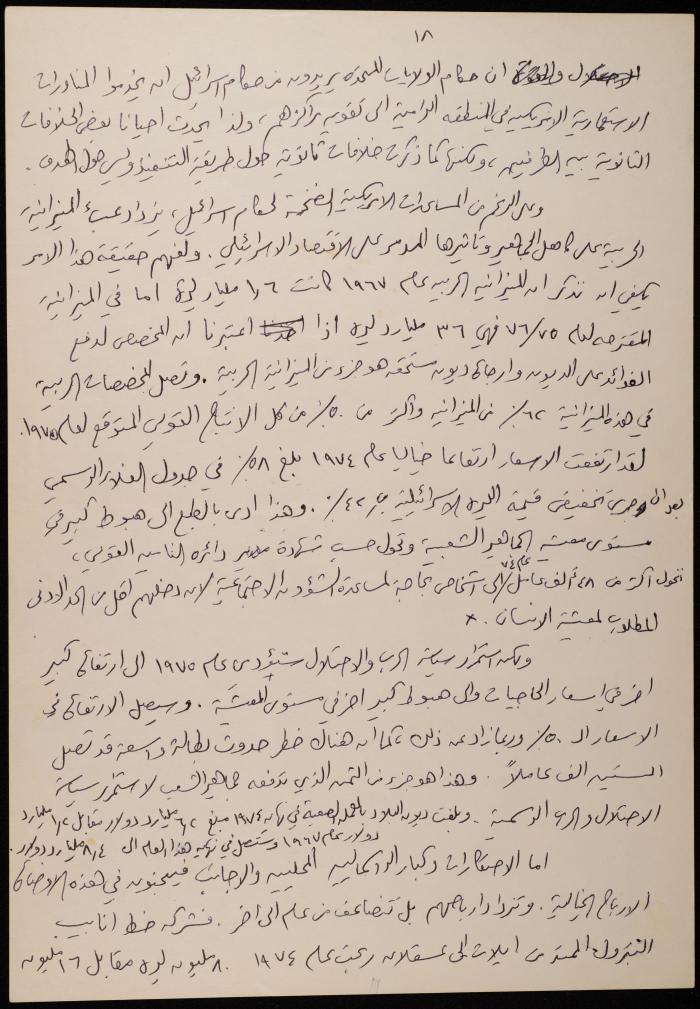 ١٨
ان حكام الولايات المتحدة يريدون من حكام اسرائيل ان يخدموا المناورات
الاستعمارية الامريكية في المنطقة الرامية الى تقوية مراكزهم، ولذا يحدث احيانا بعض الخلافات
الثانوية بين الطرفين، ولكنها كما ذكرت خلافات ثانوية حول طريقة التنفيذ وليس حول الهدف.
وعلى الرغم من المساعدات الامريكية الضخمة لحكام اسرائيل، يزداد عبء الميزانية
الحربية على كاهل الجماهير وتأثيرها المدمر على الاقتصاد الاسرائيلي. ولفهم حقيقة هذا الامر
يكفي ان نذكر ان الميزانية الحربية عام ١٩٦٧ كانت ١,٦ مليار ليرة اما في الميزانية
المقترحه لعام ٧٦/٧٥ فهي ٣٦ مليارد ليره اذا اعتبرنا ان المخصص لدفع
الفوائد على الديون وارجاع ديون مستحقه هو جزء من الميزانية الحربية. وتصل المخصصات الحربية
في هذه الميزانية ٦٢٪ من الميزانية واكثر من ٥٠٪ من كل الانتاج القومي المتوقع لعام ١٩٧٥.
لقد ارتفعت الاسعار ارتفاعا خياليا عام ١٩٧٤ بلغ ٥٨٪ في جدول الغلاء الرسمي
بعد ان جرى تخفيض قيمة الليره الاسرائيلية ب ٤٢٪. وهذا ادى بالطبع الى هبوط كبير في
مستوى معيشة الجماهير الشعبية وتحول حسب شهادة مدير دائرة التامين القومي،
تحول اكثر من ٤٨ ألف عامل عام ٧٤ الى اشخاص بحاجة لمساعدة الشؤون الاجتماعية لان دخلهم اقل من الحد الادنى
المطلوب لمعيشة الانسان. ×
ولكن استمرار سياسة الحرب والاحتلال ستؤدي عام ١٩٧٥ الى ارتفاع كبير
اخر في اسعار الحاجيات والى هبوط كبير اخر في مستوى المعيشة. وسيصل الارتفاع في
الاسعار الـ ٥٠٪ وربما زاد عن ذلك، كما ان هناك خطر حدوث بطالة واسعة قد تصل
الستين الف عاملاً. وهذا هو جزء من الثمن الذي تدفعه جماهير الشعب لاستمرار سياسة
الاحتلال والحرب الرسمية. وبلغت ديون البلاد بالعمله الصعبة في نهاية ١٩٧٤ مبلغ ٦,٢ مليارد دولار مقابل ١,٢ مليارد
دولار عام ١٩٦٧ وستصل في نهاية هذا العام الى ٨,٤ مليارد دولار.
اما الاحتكارات وكبار الرأسماليين المحليين والاجانب فيجنون في هذه الاوضاع
الارباح الخيالية. وتزداد ارباحهم بل تتضاعف من عام الى اخر. فشركة خط انابيب
البترول الممتد من ايلات الى عسقلان ربحت عام ١٩٧٤ ٨٠ مليون ليره مقابل ١٦ مليون